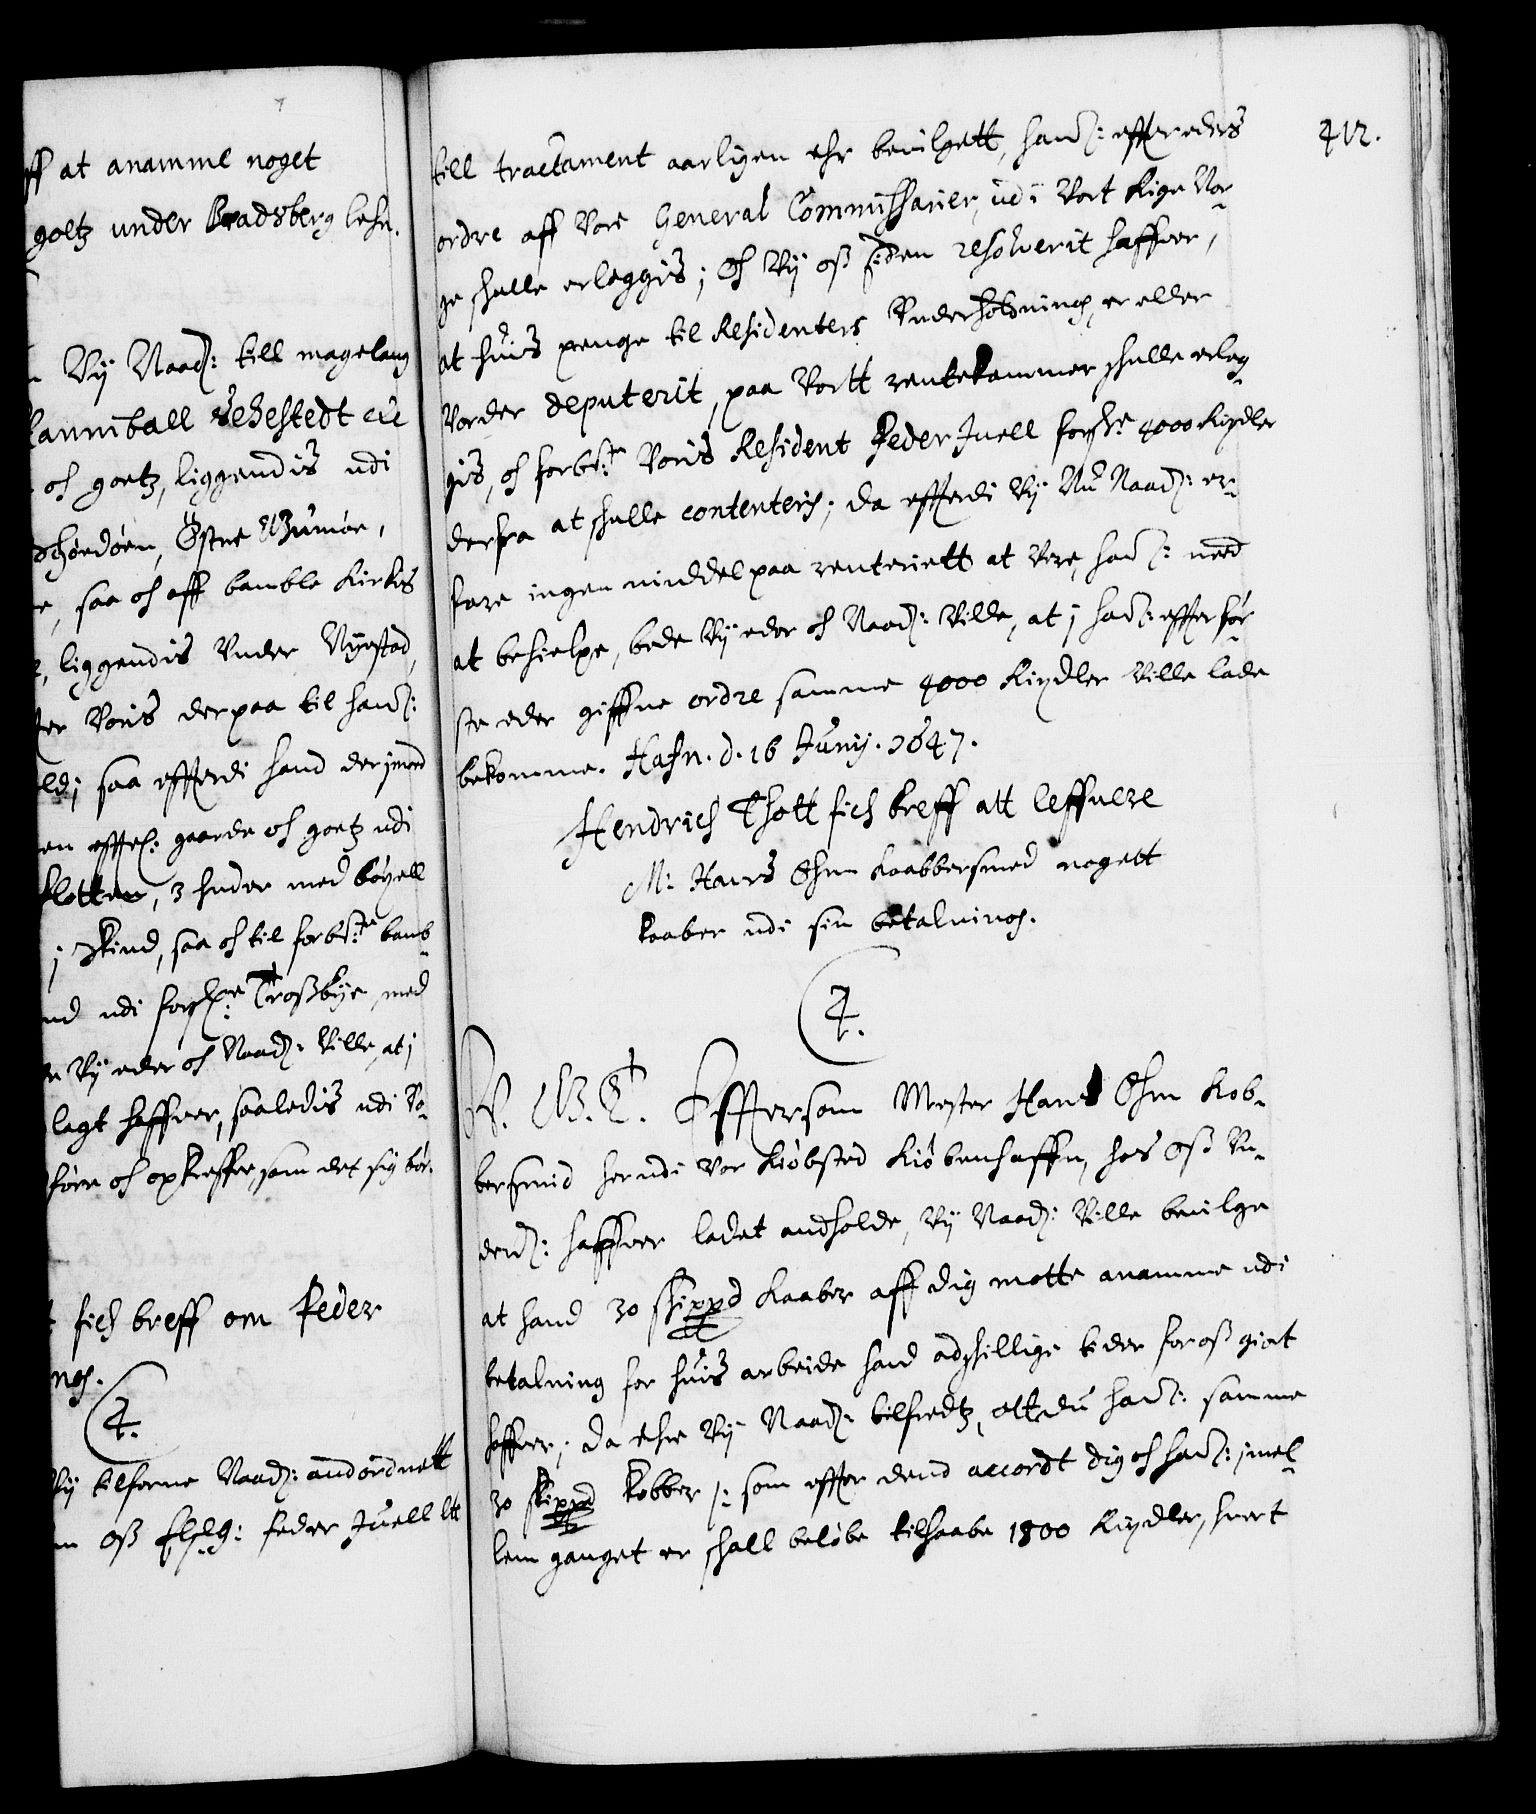 ff at anamme noget
goetz under Bradsberg lehn.
Vij Naad: till magelaug
Hannibal Sehestedt etc
och goetz, liggendis udi
Østre
saa och aff bamble Kirkes
liggendis Vnder Nyestad,
Voris derpaa til hand:
saa efftterdi hand derjmod
gaarde och goetz udi
3 huder med böxell
j skind, saa och til forbe:te bamb-
nd udi med
Vij eder och Naad: Ville, at j
lagt haffuer, saaledis udi
före och opkreffue, som det sig bör.
fich breff om Peder
ng.
4.
Vij tilforne Naad: andordnett
oss Elsk: Peder Juell
412.
till tractament aarligen ehr beuilgett, hand: effter eders
ordre aff Vore General Commissarier, udi Vort Rige Nor-
ge skulle erleggis; Och Vij oss siden resolverit haffuer,
at huis penge til Residenters Vnderholdning, er eller
Vorder deputerit, paa Vortt rentekammer skulle erleg-
gis, och forbe:te Voris Resident Peder Juell forschr:ne 4000 Rixdler
derfra at skulle contenteris; da effterdi Vij Nu Naad: er-
fare ingen middel paa renteriett at Vere, hand: med
at behielpe, bede Vij eder och Naad: Ville, at j hand: effter för-
ste eder giffne ordre samme 4000 Rixdler Ville lade
bekomme. Hafn. d. 16 Junij. 1647.
Hendrich Thott fich breff att leffuere
M: Hans Ohm Kaabbersmed nogett
kaaber udi sin betalning.
4.
V. G. T. Efftersom Mester Hans Ohm Kob-
bersmid her udi Vor Kiöbsted Kiöbenhaffn, hos Oss Vn-
derd: haffuer ladet andholde, Vij Naad: Ville beuilge
at hand 30 skippd Kaaber aff dig motte anamme udi
betalning for huis arbeide hand adskillige tider for oss giort
haffuer; da ehre Vij Naad: tilfredtz, att du hand: samme
30 skippd Kobber /: som effter dend accordt dig och hand: jmel-
lem ganget er skall belöbe tilhaabe 1800 Rixdler, huert